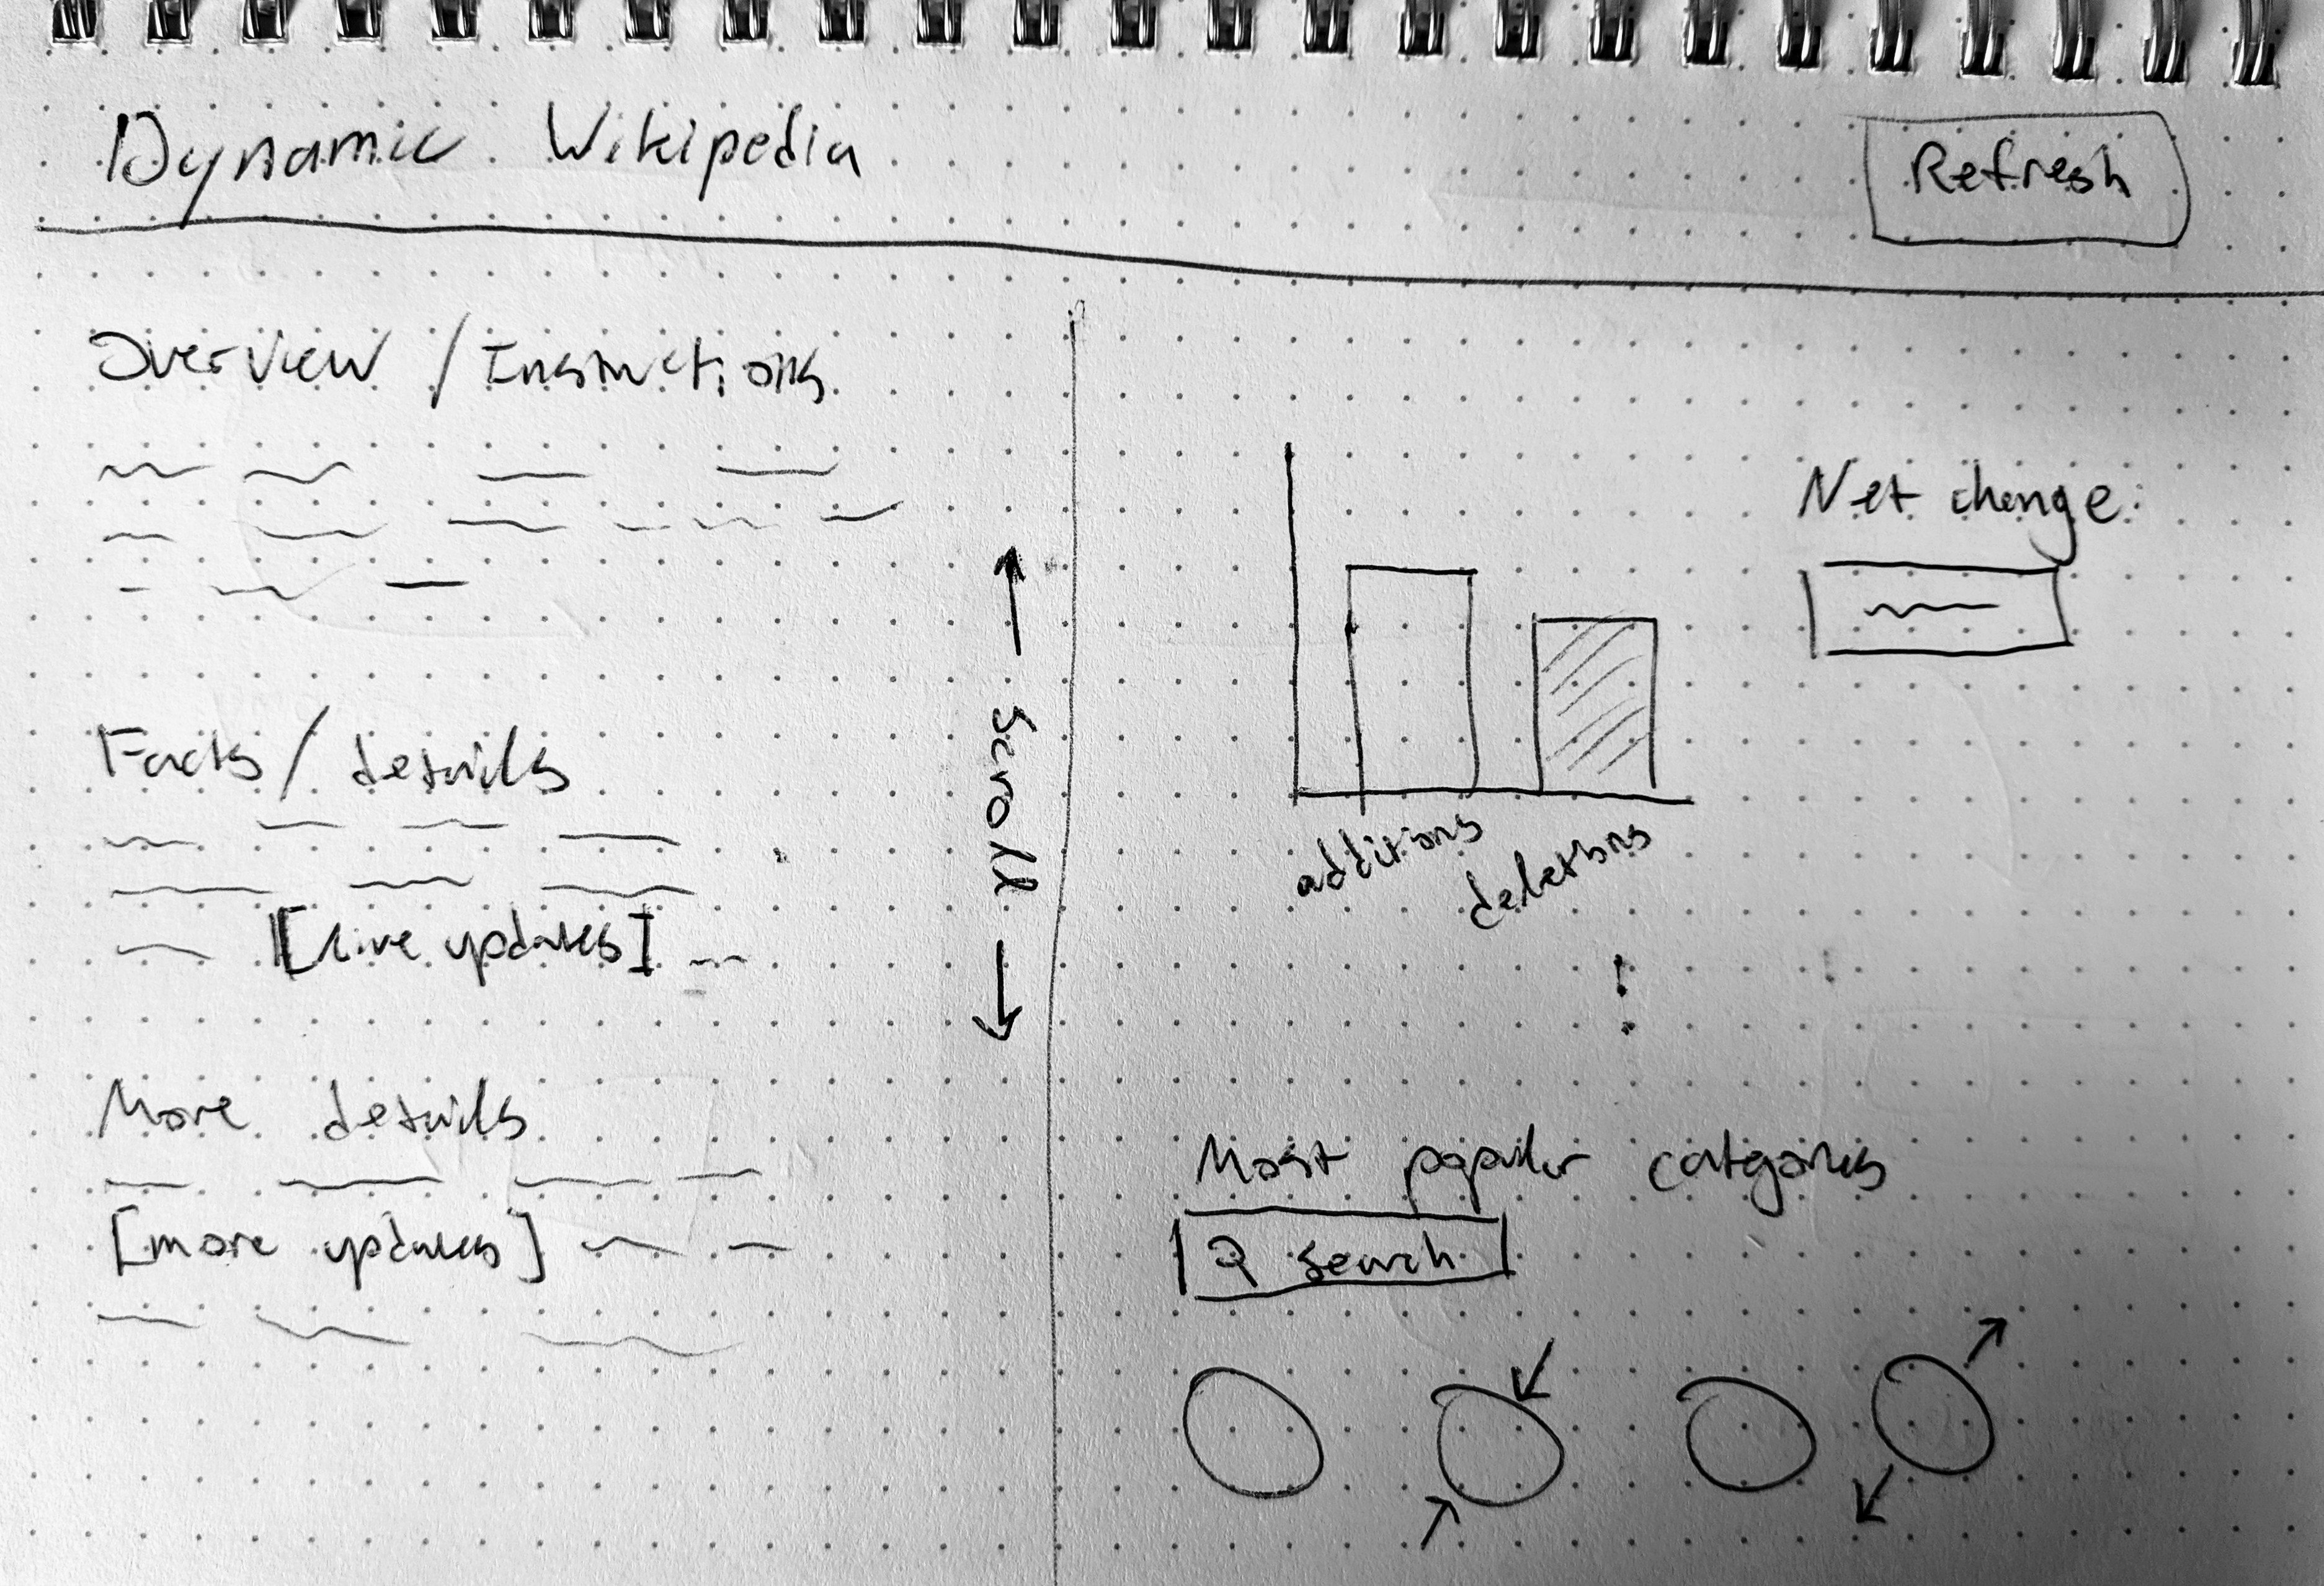 Dynamic Wikipedia
Refresh
Overview / Instructions
Facts / details
[live updates]
More details
[more updates]
Scroll
Net change:
additions
deletions
Most popular categories
search